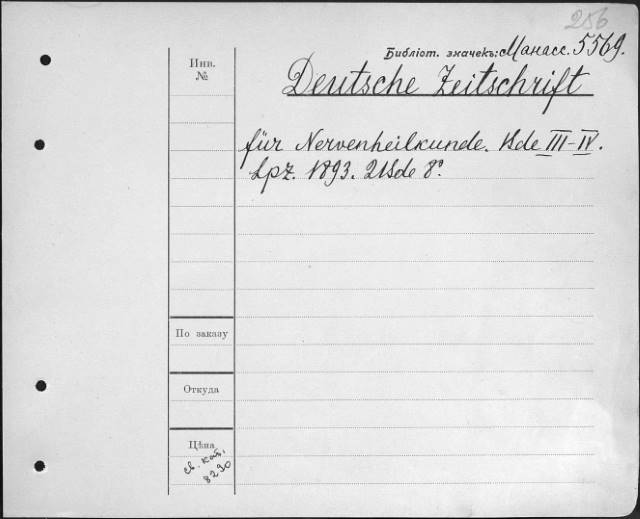 256
Библіот. значекъ: Манасс. 5569.
Инв.
№
Deutsche Zeitschrift
für Nervenheilkunde. Bde III-IV.
Lpz. 1893. 2 Bde 8°.
По заказу
Откуда
Цѣна
св. кат.
8290